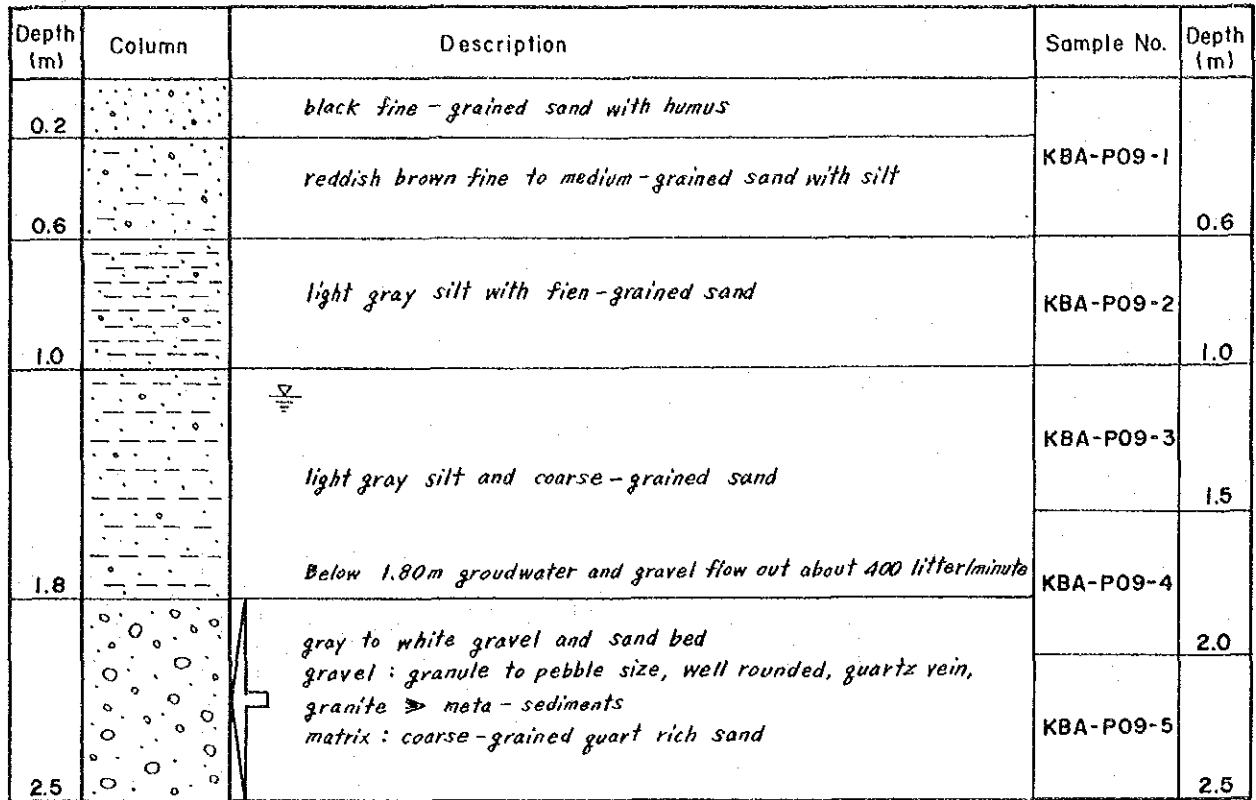 Depth (m) Column Description Sample No. Depth (m)
black fine-grained sand with humus
0.2
KBA-P09-1
reddish brown fine to medium-grained sand with silt
0.6 0.6
light gray silt with fien-grained sand
KBA-P09-2
1.0 1.0
KBA-P09-3
light gray silt and coarse-grained sand
1.5
Below 1.80m groudwater and gravel flow out about 400 litter/minute
KBA-P09-4
1.8
gray to white gravel and sand bed
2.0
gravel : granule to pebble size, well rounded, quartz vein,
granite ≫ meta-sediments
KBA-P09-5
matrix : coarse-grained quart rich sand
2.5 2.5